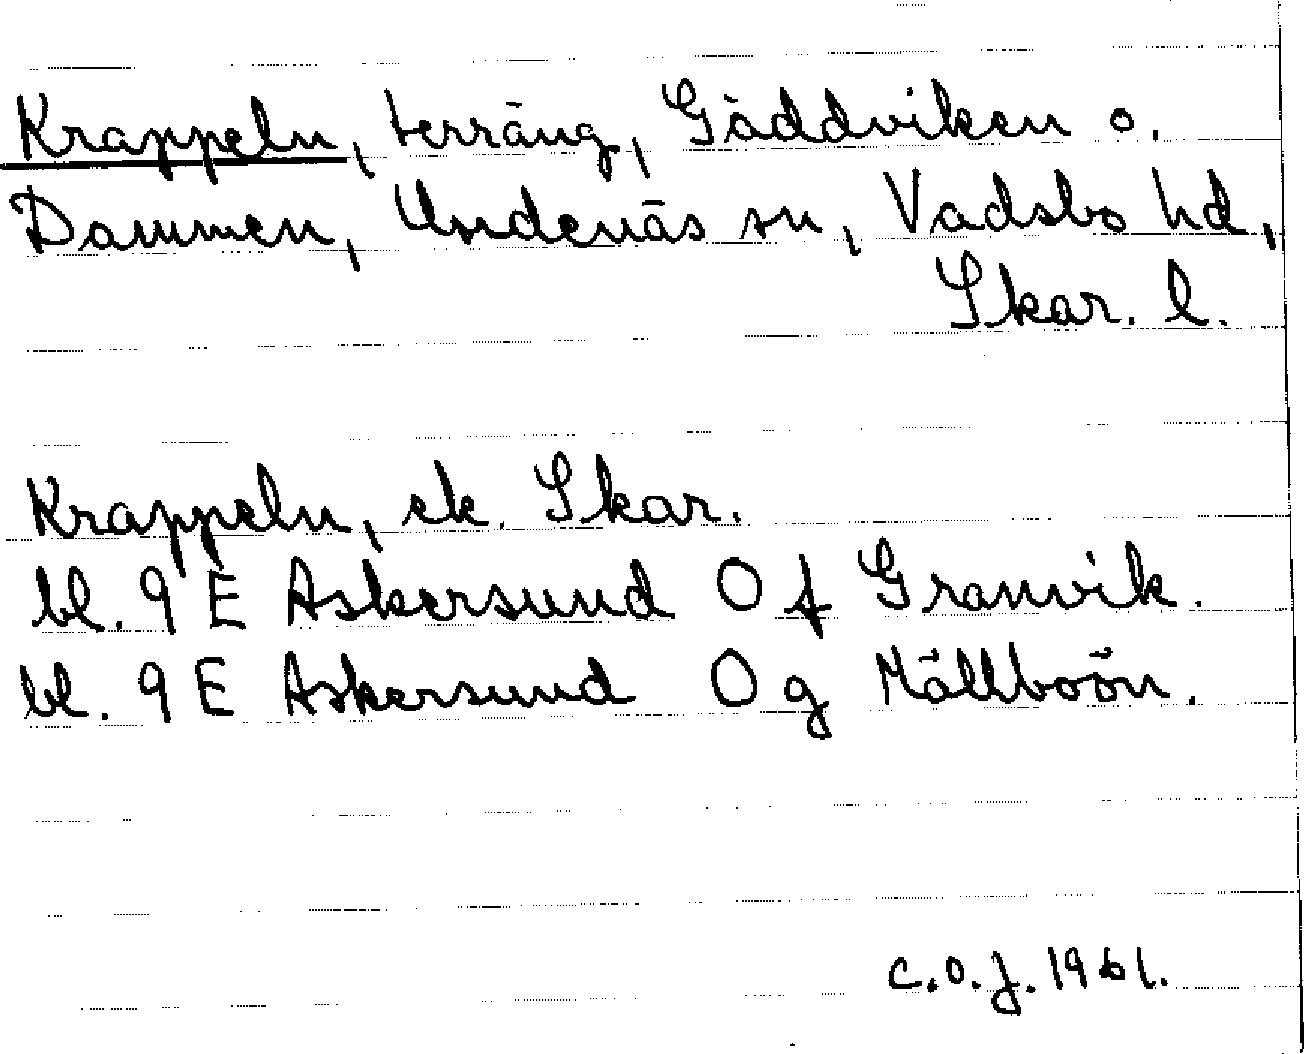 Krappeln, terräng, Gäddviken o.
Dammen, Undenäs sn, Vadsbo hd,
Skar. l.
Krappeln, ek. Skar.
bl. 9 E Askersund 0 f Granvik.
bl. 9 E Askersund 0 g Mållboön.
C.O.J. 1961.